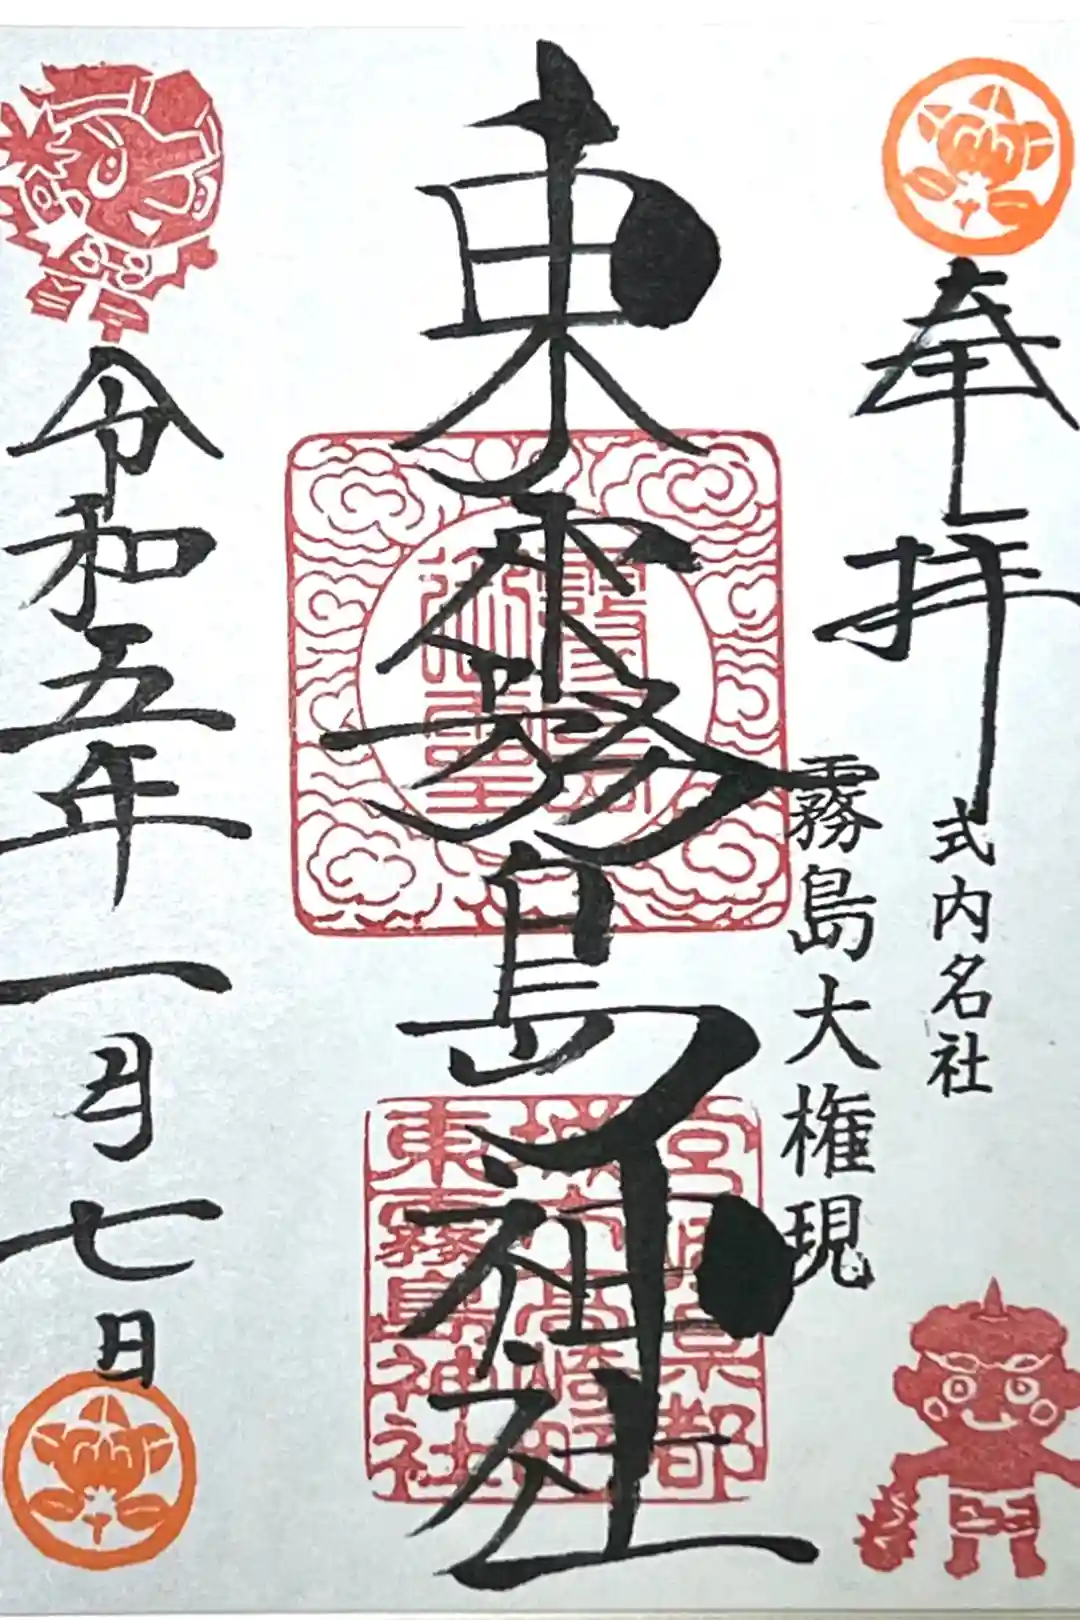 奉拝
式内名社
霧島大権現
東霧島神社
令和五年一月七日
宮崎県都
城市高崎町
東霧島神社